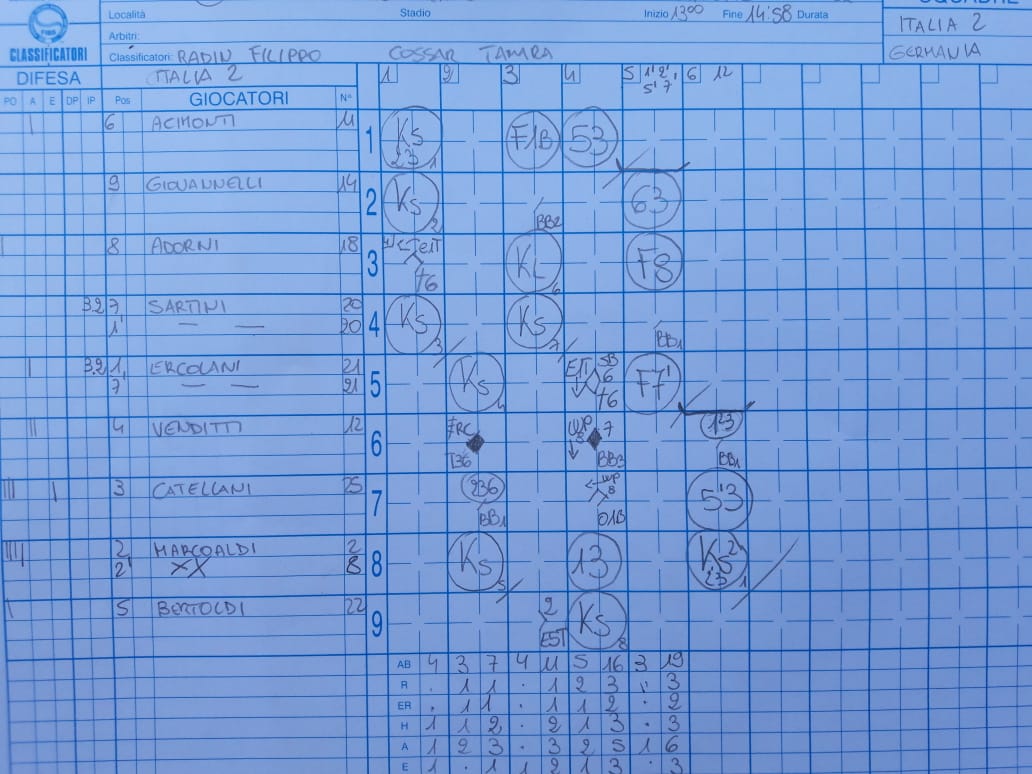 SQUADRE
Località
Stadio
Inizio 13°° Fine 14:58 Durata
ITALIA 2
Arbitri:
CLASSIFICATORI
Classificatori: RADIN FILIPPO COSSAR TAMARA
GERMANIA
DIFESA ITALIA 2 1 2 3 4 5 1' 2' 6 12
5' 7
PO A E DP IP Pos GIOCATORI N°
6 ACIMONTI 11 1 Ks 23 1 F1B 53
9 GIOVANNELLI 14 2 Ks 2 BB2 63
8 ADORNI 18 3 T6 KL 6 F8
3.2 7 SARTINI 20 4 Ks 3 Ks 7 BB1
1' — — 20
3.2 1 ERCOLANI 21 5 Ks 4 SB 6 T6 F7'
7' — — 21
4 VENDITTI 12 6 T36 WP 8 7 BB3 1'3 BB1
3 CATELLANI 25 7 236 BB1 WP 8 O1B 5'3
2 MARCOALDI 2 8 Ks 5 13 Ks 2' 2'3 1
2' XX 8
5 BERTOLDI 22 9 2 EST Ks 8
AB 4 3 7 4 11 5 16 3 19
R . 1 1 . 1 2 3 . 3
ER . 1 1 . 1 1 2 . 2
H 1 1 2 . 2 1 3 . 3
A 1 2 3 . 3 2 5 1 6
E 1 . 1 1 2 1 3 . 3